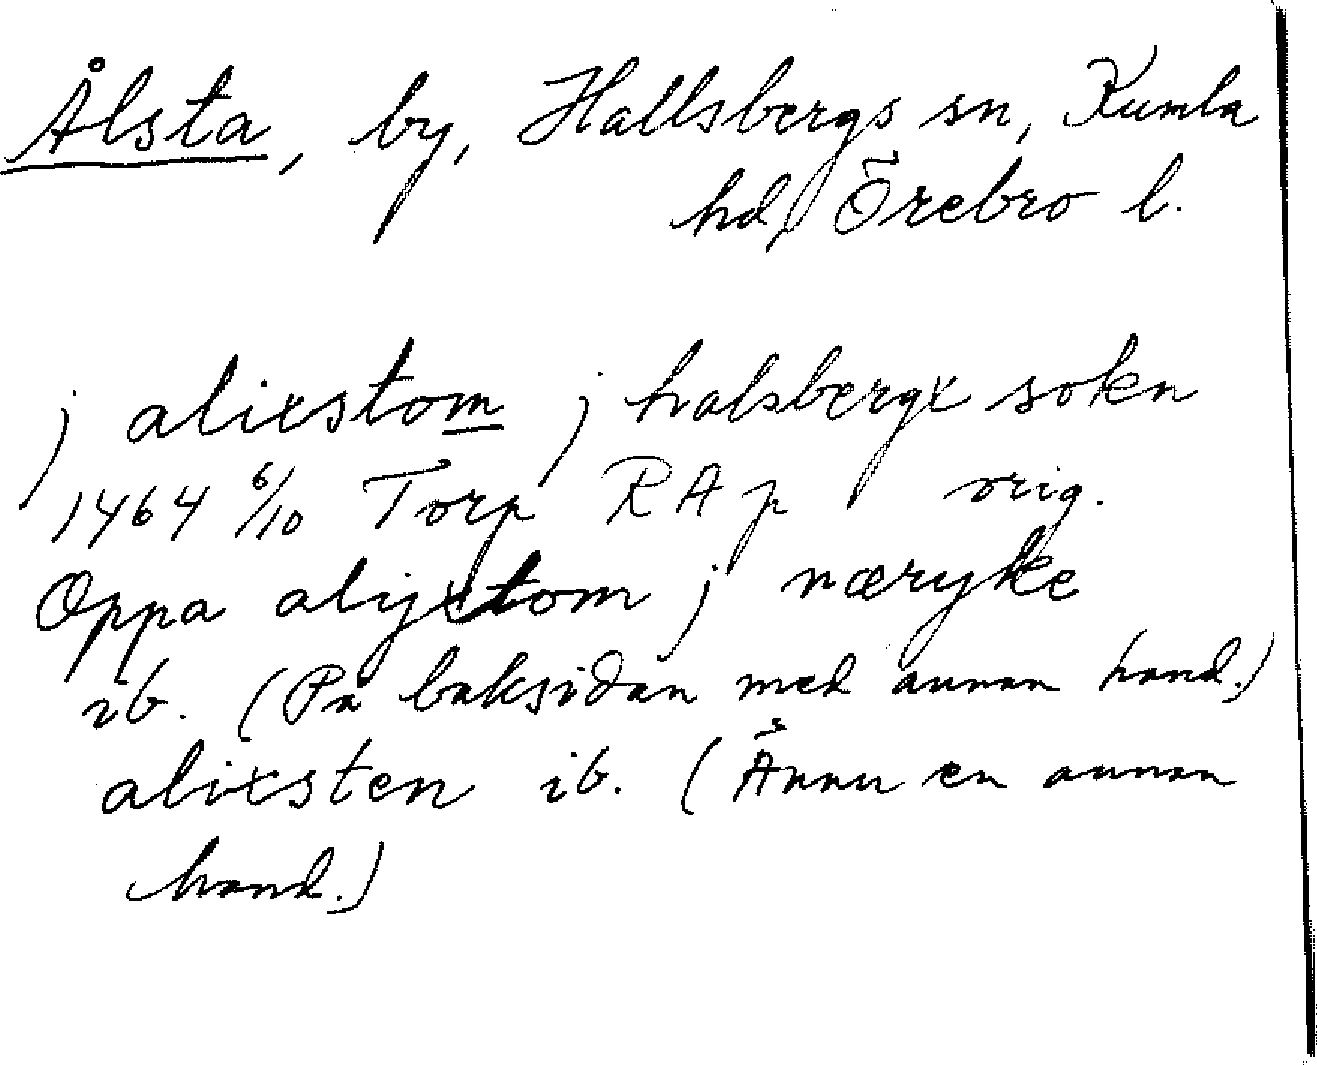 Ålsta, by, Hallsbergs sn, Kumla
hd, Örebro l.
j alixstom j halsbergx sokn
1464 6/10 Torp RAp orig.
Oppa alijxtom j næryke
ib. (På baksidan med annan hand.)
alixsten ib. (Ännu en annan
hand.)